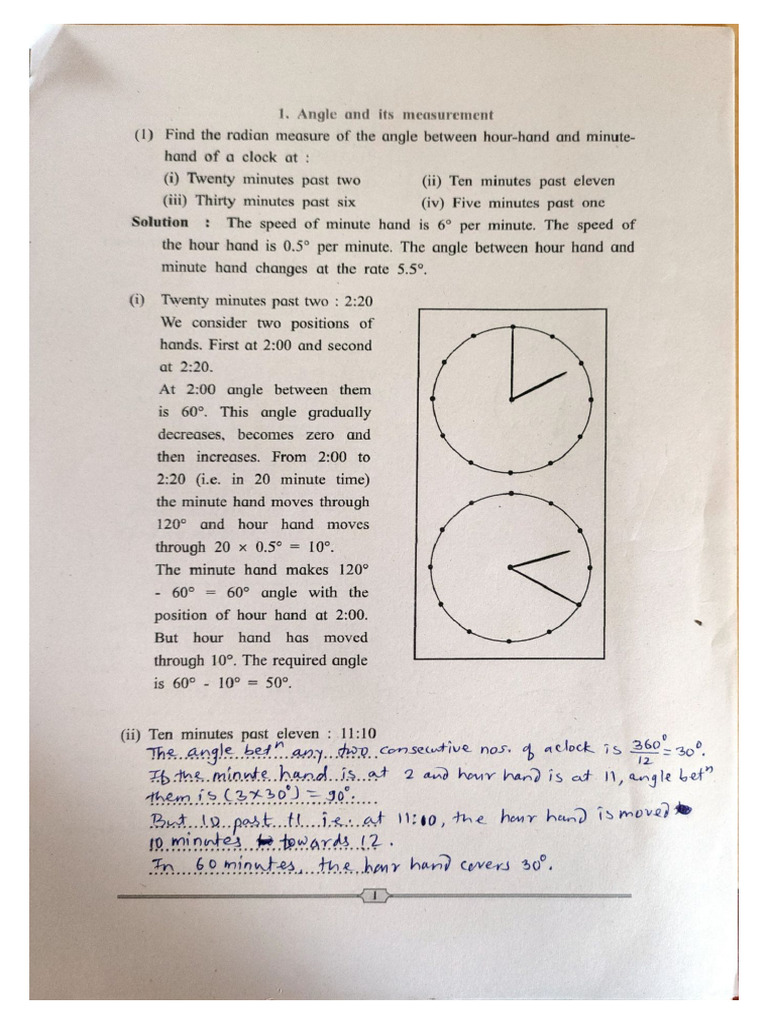 1. Angle and its measurement
(1) Find the radian measure of the angle between hour-hand and minute-
hand of a clock at :
(i) Twenty minutes past two (ii) Ten minutes past eleven
(iii) Thirty minutes past six (iv) Five minutes past one
Solution : The speed of minute hand is 6° per minute. The speed of
the hour hand is 0.5° per minute. The angle between hour hand and
minute hand changes at the rate 5.5°.
(i) Twenty minutes past two : 2:20
We consider two positions of
hands. First at 2:00 and second
at 2:20.
At 2:00 angle between them
is 60°. This angle gradually
decreases, becomes zero and
then increases. From 2:00 to
2:20 (i.e. in 20 minute time)
the minute hand moves through
120° and hour hand moves
through 20 × 0.5° = 10°.
The minute hand makes 120°
- 60° = 60° angle with the
position of hour hand at 2:00.
But hour hand has moved
through 10°. The required angle
is 60° - 10° = 50°.
(ii) Ten minutes past eleven : 11:10
The angle betⁿ any two consecutive nos. of a clock is 360°/12 = 30°.
If the minute hand is at 2 and hour hand is at 11, angle betⁿ
them is (3×30°) = 90°.
But 10 past 11 i.e. at 11:10, the hour hand is moved
10 minutes towards 12.
In 60 minutes, the hour hand covers 30°.
1